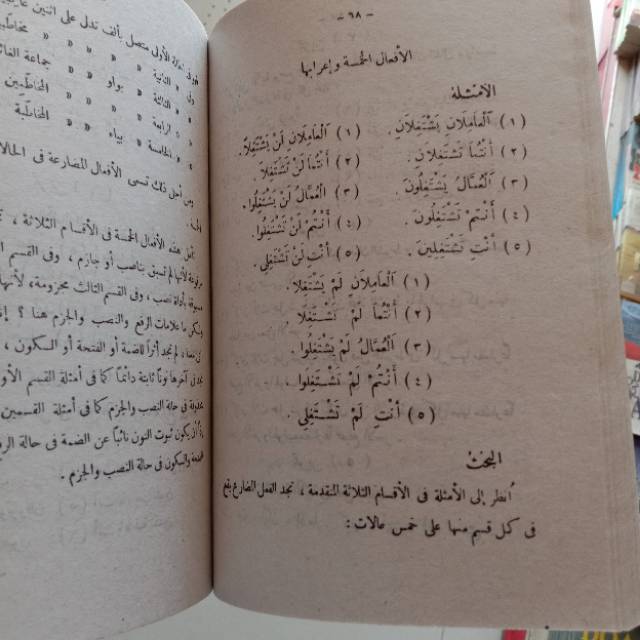 - ٦٨ -
الأفعال الخمسة وإعرابها
الأمثلة
(١) اَلْعَامِلَانِ يَشْتَغِلَانِ. (١) اَلْعَامِلَانِ لَنْ يَشْتَغِلَا.
(٢) أَنْتُمَا تَشْتَغِلَانِ. (٢) أَنْتُمَا لَنْ تَشْتَغِلَا.
(٣) اَلْعُمَّالُ يَشْتَغِلُونَ. (٣) اَلْعُمَّالُ لَنْ يَشْتَغِلُوا.
(٤) أَنْتُمْ تَشْتَغِلُونَ. (٤) أَنْتُمْ لَنْ تَشْتَغِلُوا.
(٥) أَنْتِ تَشْتَغِلِينَ. (٥) أَنْتِ لَنْ تَشْتَغِلِي.
(١) اَلْعَامِلَانِ لَمْ يَشْتَغِلَا.
(٢) أَنْتُمَا لَمْ تَشْتَغِلَا.
(٣) اَلْعُمَّالُ لَمْ يَشْتَغِلُوا.
(٤) أَنْتُمْ لَمْ تَشْتَغِلُوا.
(٥) أَنْتِ لَمْ تَشْتَغِلِي.
البحث
اُنظر إلى الأمثلة فى الأقسام الثلاثة المتقدمة، تجد الفعل المضارع يقع
فى كل قسم منها على خمس حالات:
الأولى متصل بألف تدل على اثنين
الثانية » » »
الثالثة » بواو » » جماعة
» » »
الخامسة » بياء » »
ذلك تسمى الأفعال المضارعة فى
هذه الأفعال الخمسة فى الأقسام الثلاثة،
لم تسبق بناصب أو جازم، وفى القسم
أداة نصب، وفى القسم الثالث مجزومة، لأنها
علامات الرفع والنصب والجزم هنا؟
لم تجد أثرا للضمة أو الفتحة أو السكون،
فى آخرها نونًا ثابتة دائمًا كما فى أمثلة القسم
فى حالة النصب والجزم كما فى أمثلة القسمين
أن يكون ثبوت النون نائبًا عن الضمة فى حالة
والسكون فى حالة النصب والجزم.